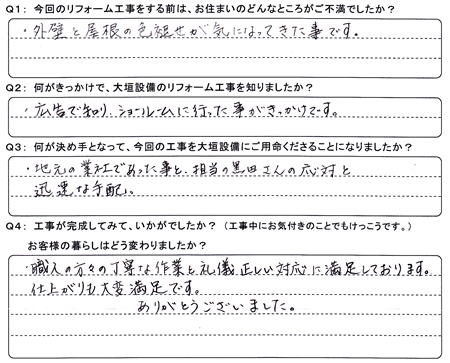 Q1：今回のリフォーム工事をする前は、お住まいのどんなところがご不満でしたか？
・外壁と屋根の色褪せが気になってきた事です。
Q2：何がきっかけで、大垣設備のリフォーム工事を知りましたか？
・広告で知り、ショールームに行った事がきっかけです。
Q3：何が決め手となって、今回の工事を大垣設備にご用命くださることになりましたか？
・地元の業社であった事と、担当の黒田さんの応対と
迅速な手配。
Q4：工事が完成してみて、いかがでしたか？（工事中にお気付きのことでもけっこうです。）
お客様の暮らしはどう変わりましたか？
・職人の方々の丁寧な作業と礼儀正しい対応に満足しております。
仕上がりも大変満足です。
ありがとうございました。